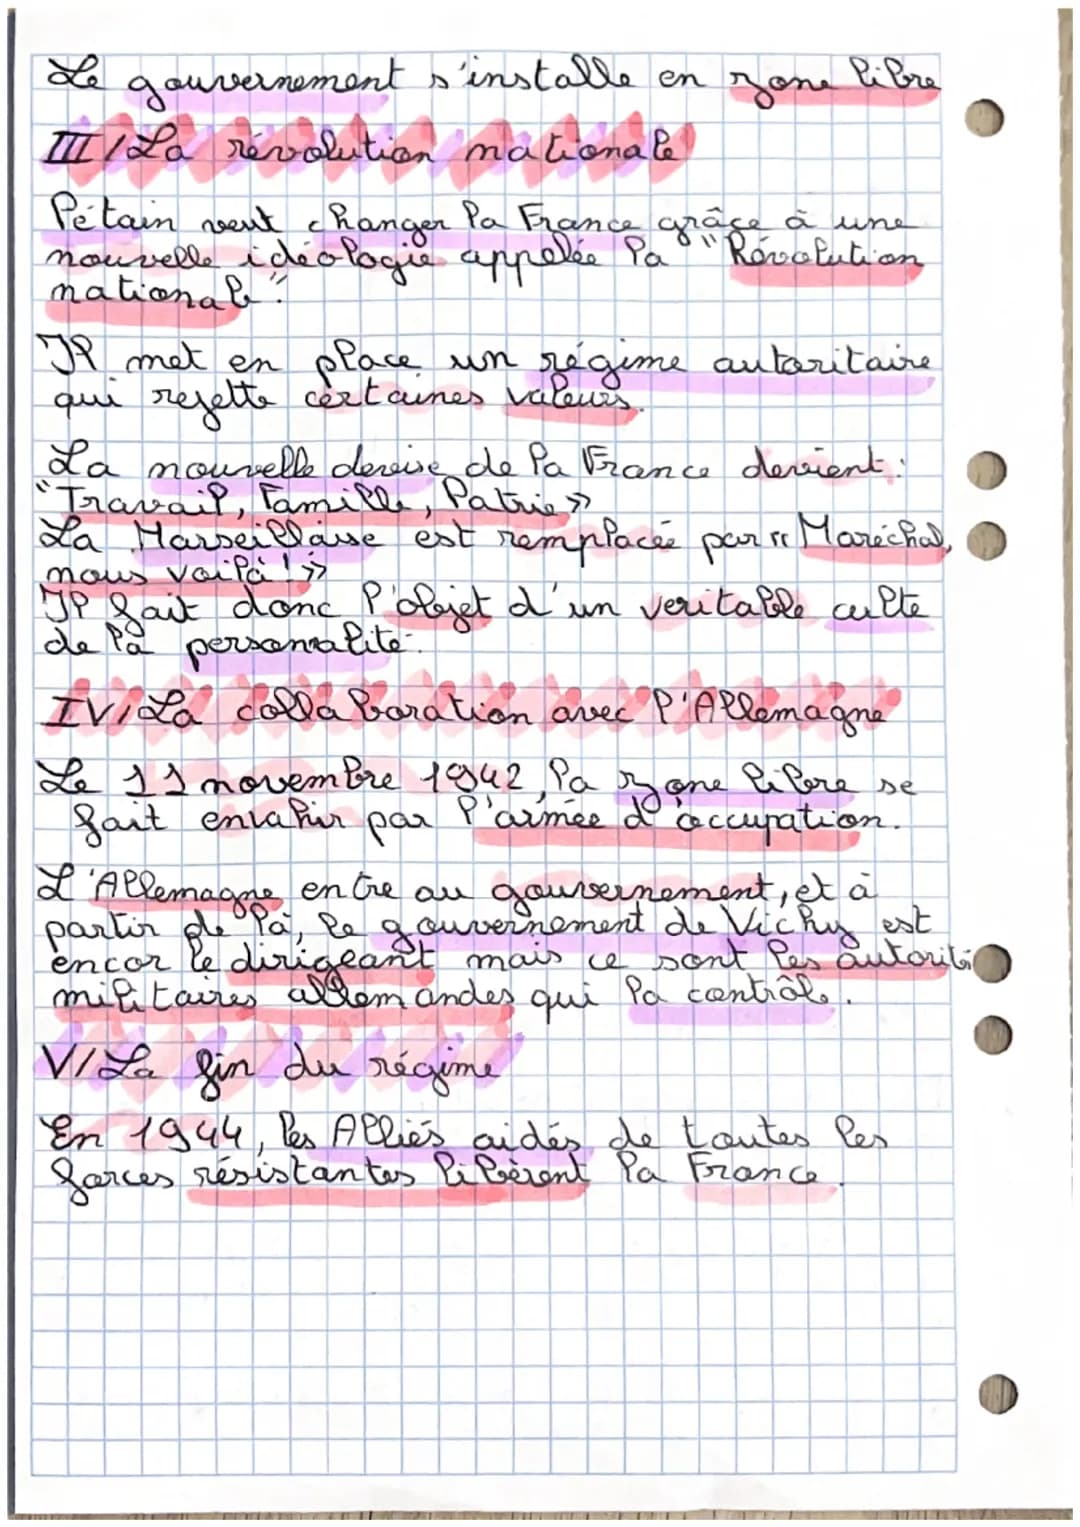 Le gouvernement s'installe en zone libre
III/La révolution nationale
Pétain veut changer la France grâce à une
nouvelle idéologie appelée la "Révolution
nationale".
IP met en place un régime autoritaire
qui rejette certaines valeurs.
La nouvelle devise de la France devient :
"Travail, Famille, Patrie»
La Marseillaise est remplacée par « Maréchal,
nous voilà !»
IP fait donc l'objet d'un veritable culte
de la personnalité.
IV/La collaboration avec l'Allemagne
Le 11 novembre 1942, la zone libre se
fait envahir par l'armée d'occupation.
L'Allemagne entre au gouvernement, et à
partir de là, le gouvernement de Vichy est
encor le dirigeant mais ce sont les autorités
militaires allemandes qui la contrôle.
V/La fin du régime
En 1944, les Alliés aidés de toutes les
forces résistantes libèrent la France.